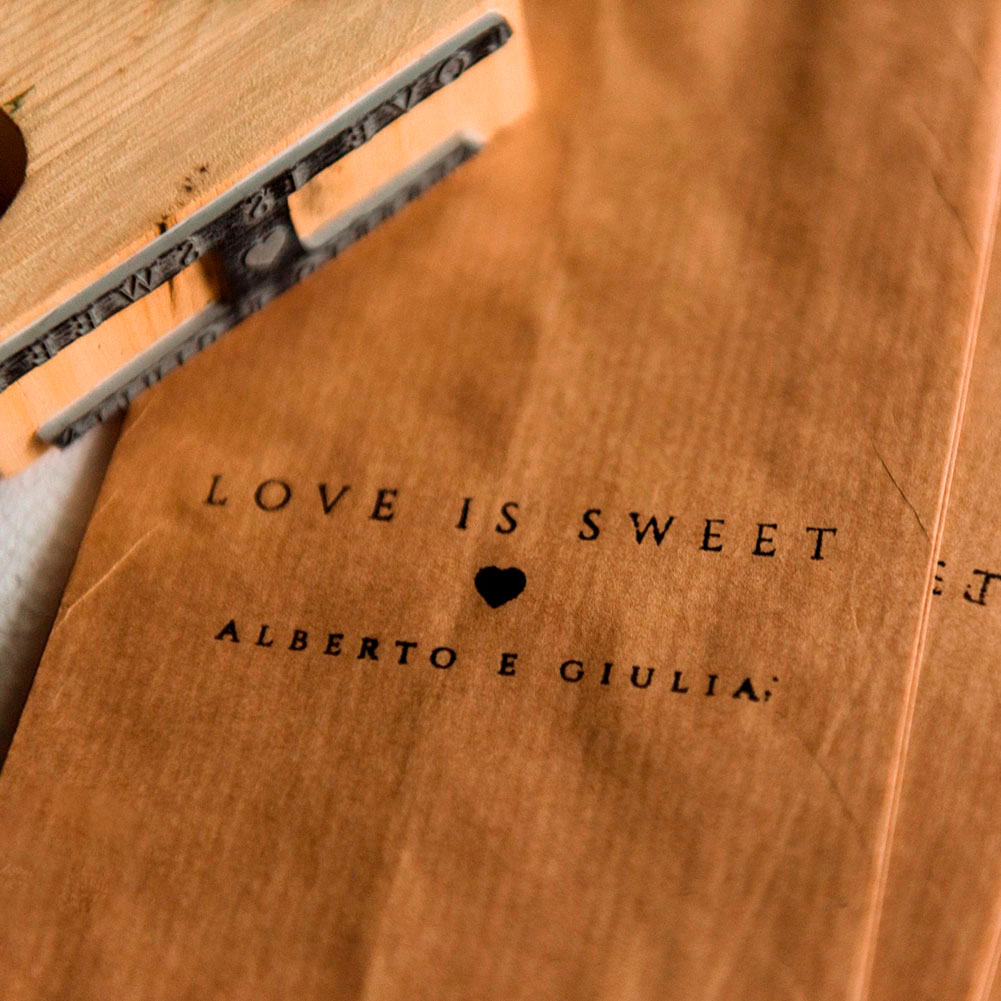 LOVE IS SWEET
♥
ALBERTO E GIULIA